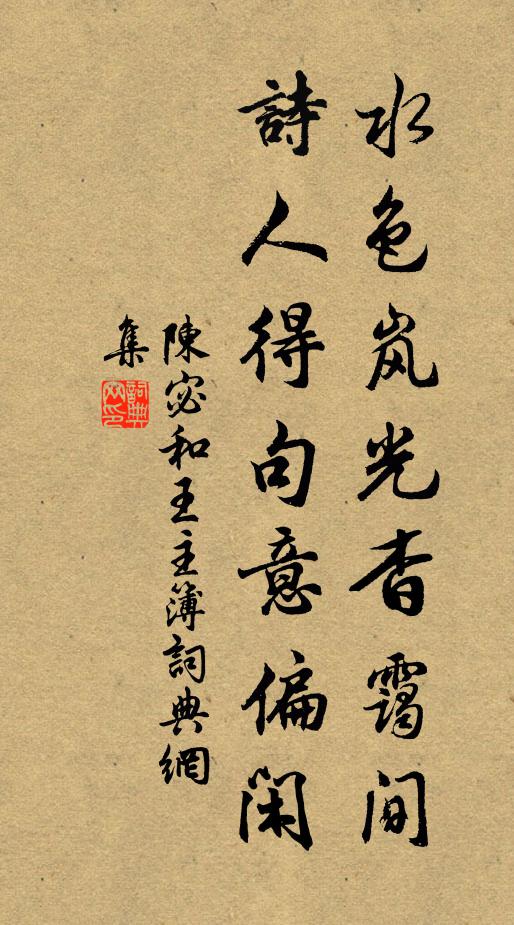 水色岚光杳靄间
詩人得句意偏闲
陳宓和王主簿詞典網
集
詞典網印